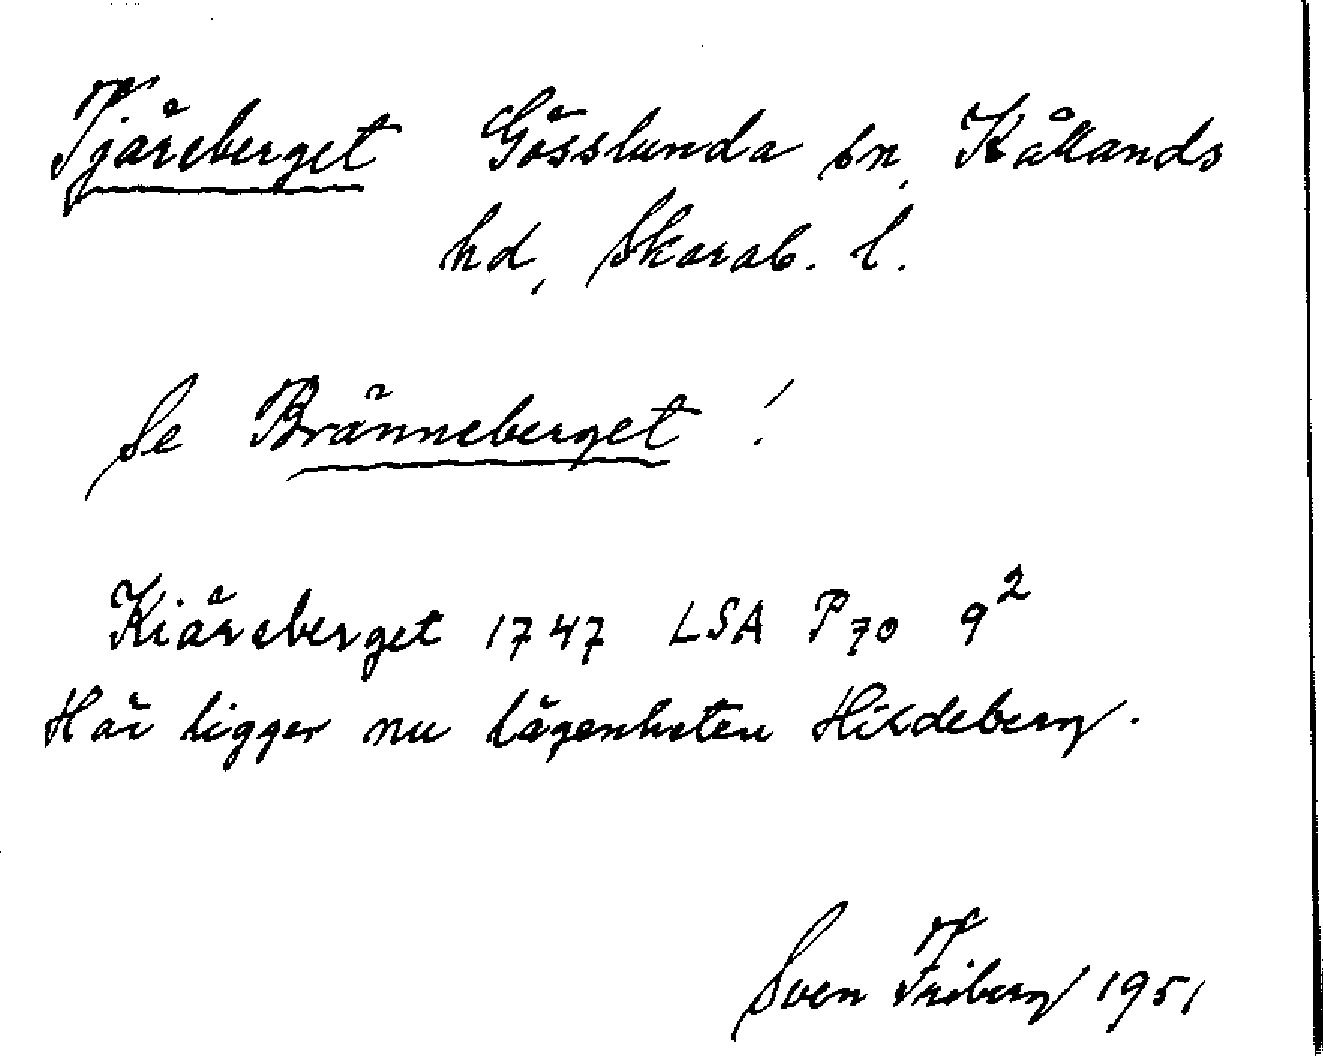 Tjäreberget Gösslunda sn, Kållands
hd, Skarab. l.
Se Bränneberget !
Kiäreberget 1747 LSA P70 9²
Här ligger nu lägenheten Hildeberg.
Sven Friberg 1951